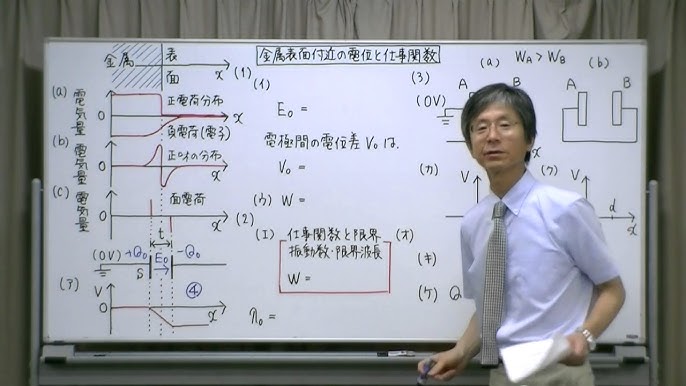 金属表面付近の電位と仕事関数
金属 表面 x
(a) 電気量 0 正電荷分布 x
負電荷(電子)
(b) 電気量 0 正味の分布 x
(c) 電気量 0 面電荷 x
t
(0V) +Q₀ E₀ -Q₀
S
(ア) V 0 ④ x
(1)
(イ)
E₀ =
電極間の電位差 V₀ は.
V₀ =
(ウ) W =
(2)
(エ) 仕事関数と限界
振動数・限界波長
W =
n₀ =
(オ)
(3) (a) W_A > W_B (b)
A A B
(0V)
(カ) V (ク) V
0 d x
(キ)
(ケ) Q